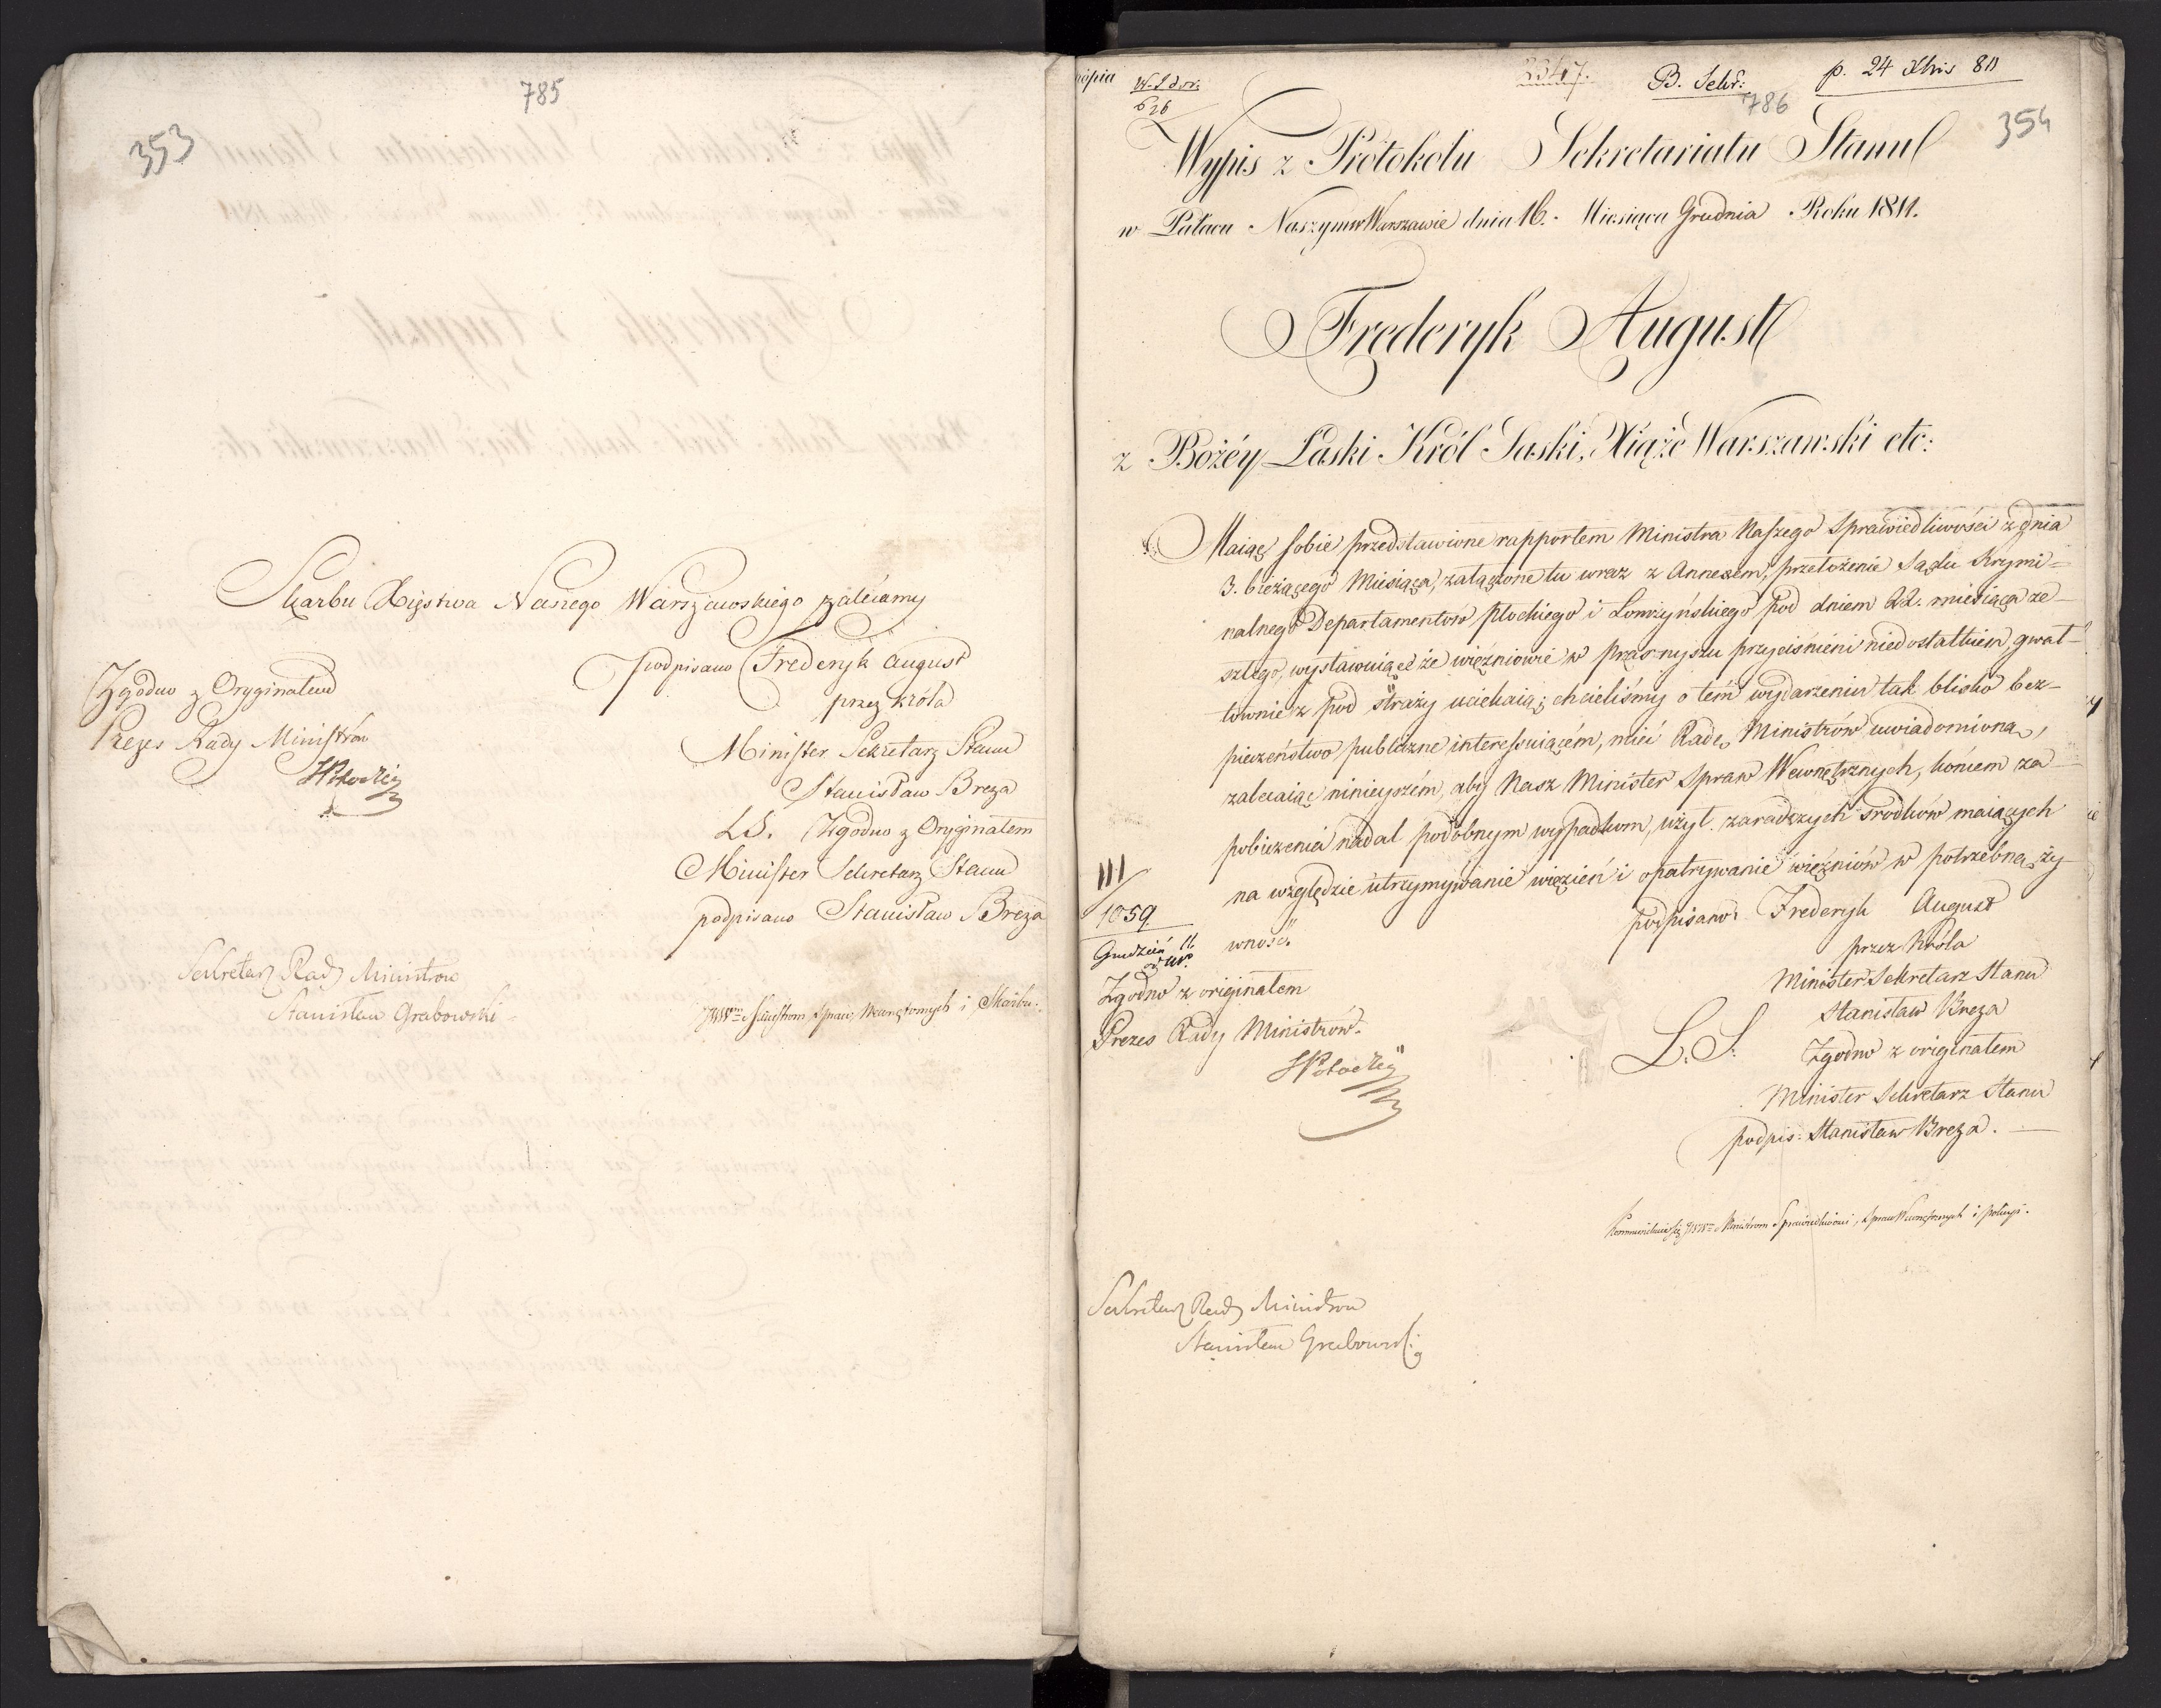 785
353
Skarbu Xięstwa Naszego Warszawskiego zalécamy
podpisano Frederyk August
przez króla
Minister Sekretarz Stanu
Stanisław Breza
LS. Zgodno z Oryginałem
Minister Sekretarz Stanu
podpisano Stanisław Breza
Zgodno z Oryginałem
Prezes Rady Ministrów
Sekretarz Rady Ministrow
Stanisław Grabowski
Ministrom Spraw Wewnętrznych i Skarbu.
opia
626
B. Sekr:
p. 24 Xbris 811
786
354
Wypis z Protokołu Sekretariatu Stanu
w Pałacu Naszym w Warszawie dnia 16. Miesiąca Grudnia Roku 1811.
Frederyk August
z Bożéy Łaski Król Saski, Xiąże Warszawski etc:
Maiąc sobie przedstawione rapportem Ministra Naszego Sprawiedliwości z dnia
3. bieżącego Miesiąca, załączone tu wraz z Annexem, przełożenie Sądu Krymi=
nalnego Departamentów Płockiego i Łomżyńskiego pod dniem 22. miesiąca ze-
szłego, wystawuiące że więzniowie w Prasnyszu przyciśnieni niedostatkiem, gwał-
townie z pod straży uciekaią; chcieliśmy o tém wydarzeniu tak blisko bez-
pieczeństwo publiczne interessuiącém, mieć Radę Ministrów uwiadomioną,
zalecaiąc ninieyszém, aby Nasz Minister Spraw Wewnętrznych, końcem za-
pobieżenia nadal podobnym wypadkom, użył zaradczych srodków maiących
na względzie utrzymywanie więzień i opatrywanie więzniów w potrzebną ży-
wność.
podpisano: Frederyk August
przez Króla
Minister Sekretarz Stanu
Stanisław Breza
L: S: Zgodno z originałem
Minister Sekretarz Stanu
podpis: Stanisław Breza.
III
1059
Grudzień 11.
Zgodno z originałem
Prezes Rady Ministrów.
Ministrom Sprawiedliwości, Spraw Wewnętrznych i Policyi.
Sekretarz Rady Ministrow
Stanisław Grabowski